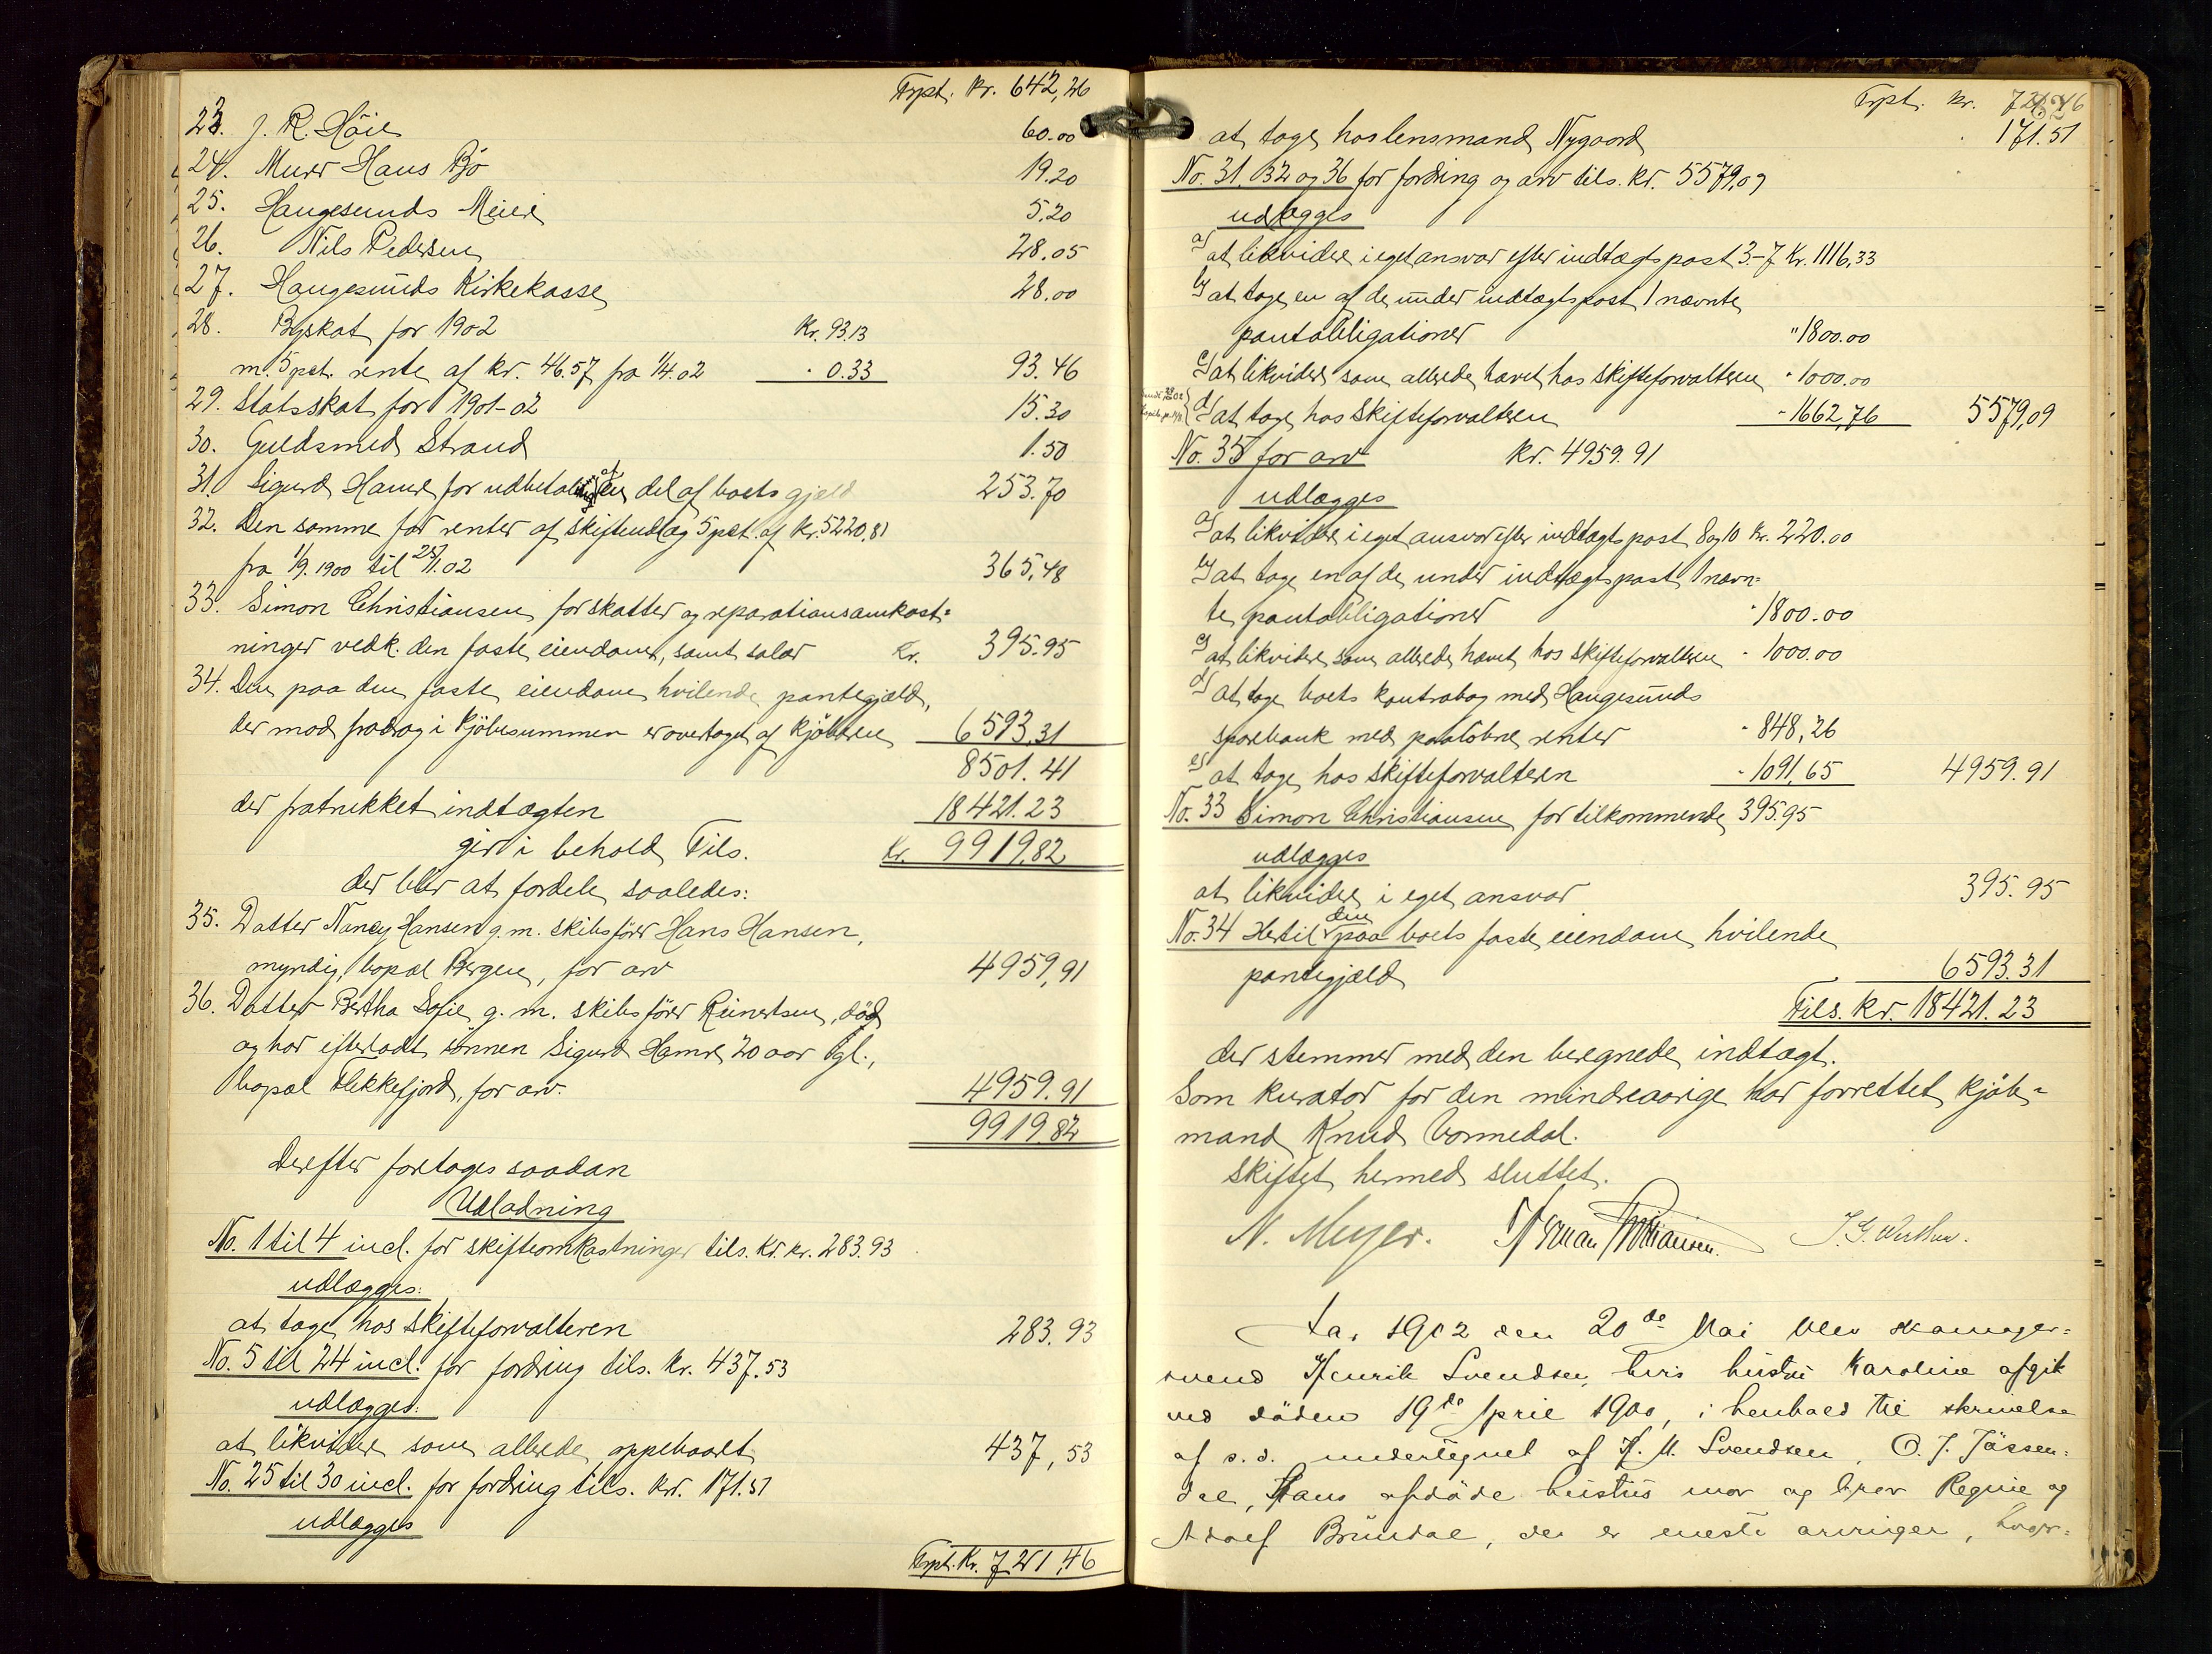 Trpt. Kr. 642,26
23. J. R. Höie 60.00
24. Murer Hans Bö 19.20
25. Haugesunds Meieri 5.20
26. Nils Pedersen 28.05
27. Haugesunds Kirkekasse 28.00
28. Byskat for 1902 Kr. 93.13
m. 5 pct. rente af kr. 46.57 fra 1/4.02 " 0.33 93.46
29. Statsskat for 1901-02 15.30
30. Guldsmed Strand 1.50
31. Sigurd Hamre for udbetaling af en del af boets gjæld 253.70
32. Den samme for renter af skifteudlæg 5 pct. af kr. 5220,81
fra 1/9. 1900 til 25/1.02 365,48
33. Simon Christiansen for skatter og reparationsomkost=
ninger vedk. den faste eiendom, samt salær Kr. 395.95
34. Den paa den faste eiendom hvilende pantegjæld,
der mod fradrag i kjöbesummen er overtaget af kjöberen 6593,31
8501.41
der fratrukket indtægten 18421.23
gir i behold Tils. Kr. 9919,82
der blir at fordele saaledes:
35. Datter Nancy Hansen g. m. skibsförer Hans Hansen,
myndig, bopæl Bergen, for arv 4959,91
36. Datter Bertha Sofie g. m. skibsförer Reinertsen, död
og har efterladt sönnen Sigurd Hamre 20 aar gl.,
bopæl Flekkefjord, for arv. 4959.91
9919.82
Derefter foretages saadan
Udlodning
No. 1 til 4 incl. for skifteomkostninger tils. Kr kr. 283.93
udlægges:
at tage hos skifteforvalteren 283.93
No. 5 til 24 incl. for fordring tils. kr. 437.53
udlægges:
at likvidere som allerede oppebaaret 437,53
No. 25 til 30 incl. for fordring tils. kr. 171.51
udlægges
Trpt. Kr. 721,46
Trpt. kr. 721,46
at tage hos lensmand Nygaard 171.51
No. 31, 32 og 36 for fordring og arv tils. kr. 5579,09
udlægges
a) at likvidere i eget ansvar efter indtægtspost 3-7 Kr. 1116,33
b) at tage en af de under indtægtspost 1 nævnte
pantobligationer " 1800.00
c) at likvidere som allerede hævet hos skifteforvalteren " 1000.00
d) at tage hos skifteforvalteren " 1662,76 5579,09
No. 35 for arv kr. 4959.91
udlægges
a) at likvidere i eget ansvar efter indtægtspost 8 og 10 kr. 220.00
b) at tage en af de under indtægtspost 1 nævn=
te pantobligationer " 1800.00
c) at likvidere som allerede hævet hos skifteforvalteren " 1000.00
d) at tage boets kontrabog med Haugesunds
sparebank med paalöbne renter " 848,26
e) at tage hos skifteforvalteren " 1091,65 4959.91
No. 33 Simon Christiansen for tilkommende 395.95
udlægges
at likvidere i eget ansvar 395.95
No. 34 Hertil den paa boets faste eiendom hvilende
pantegjæld 6593.31
Tils. kr. 18421.23
der stemmer med den beregnede indtægt.
Som kurator for den mindreaarige har forrettet kjöb=
mand Knud Vormedal.
Skiftet hermed sluttet.
N. Meyer. Herman Christiansen.
Aar 1902 den 20de Mai blev
svend Henrik Svendsen, hvis hustru Karoline afgik
ved döden 19de April 1900, i henhold til skrivelse
af s. d. undertegnet af H. M. Svendsen, O. J. Jössen=
dal, Hans afdöde hustrus mor og bror Regine og
Adolf Bründal, der er eneste arvinger,